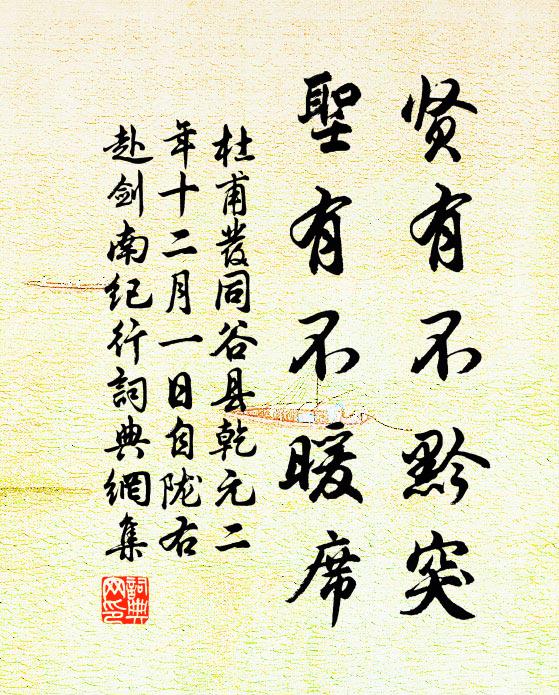 贤有不黔突
聖有不暖席
杜甫發同谷县乾元二
年十二月一日自陇右
赴剑南纪行詞典網集
詞典网印